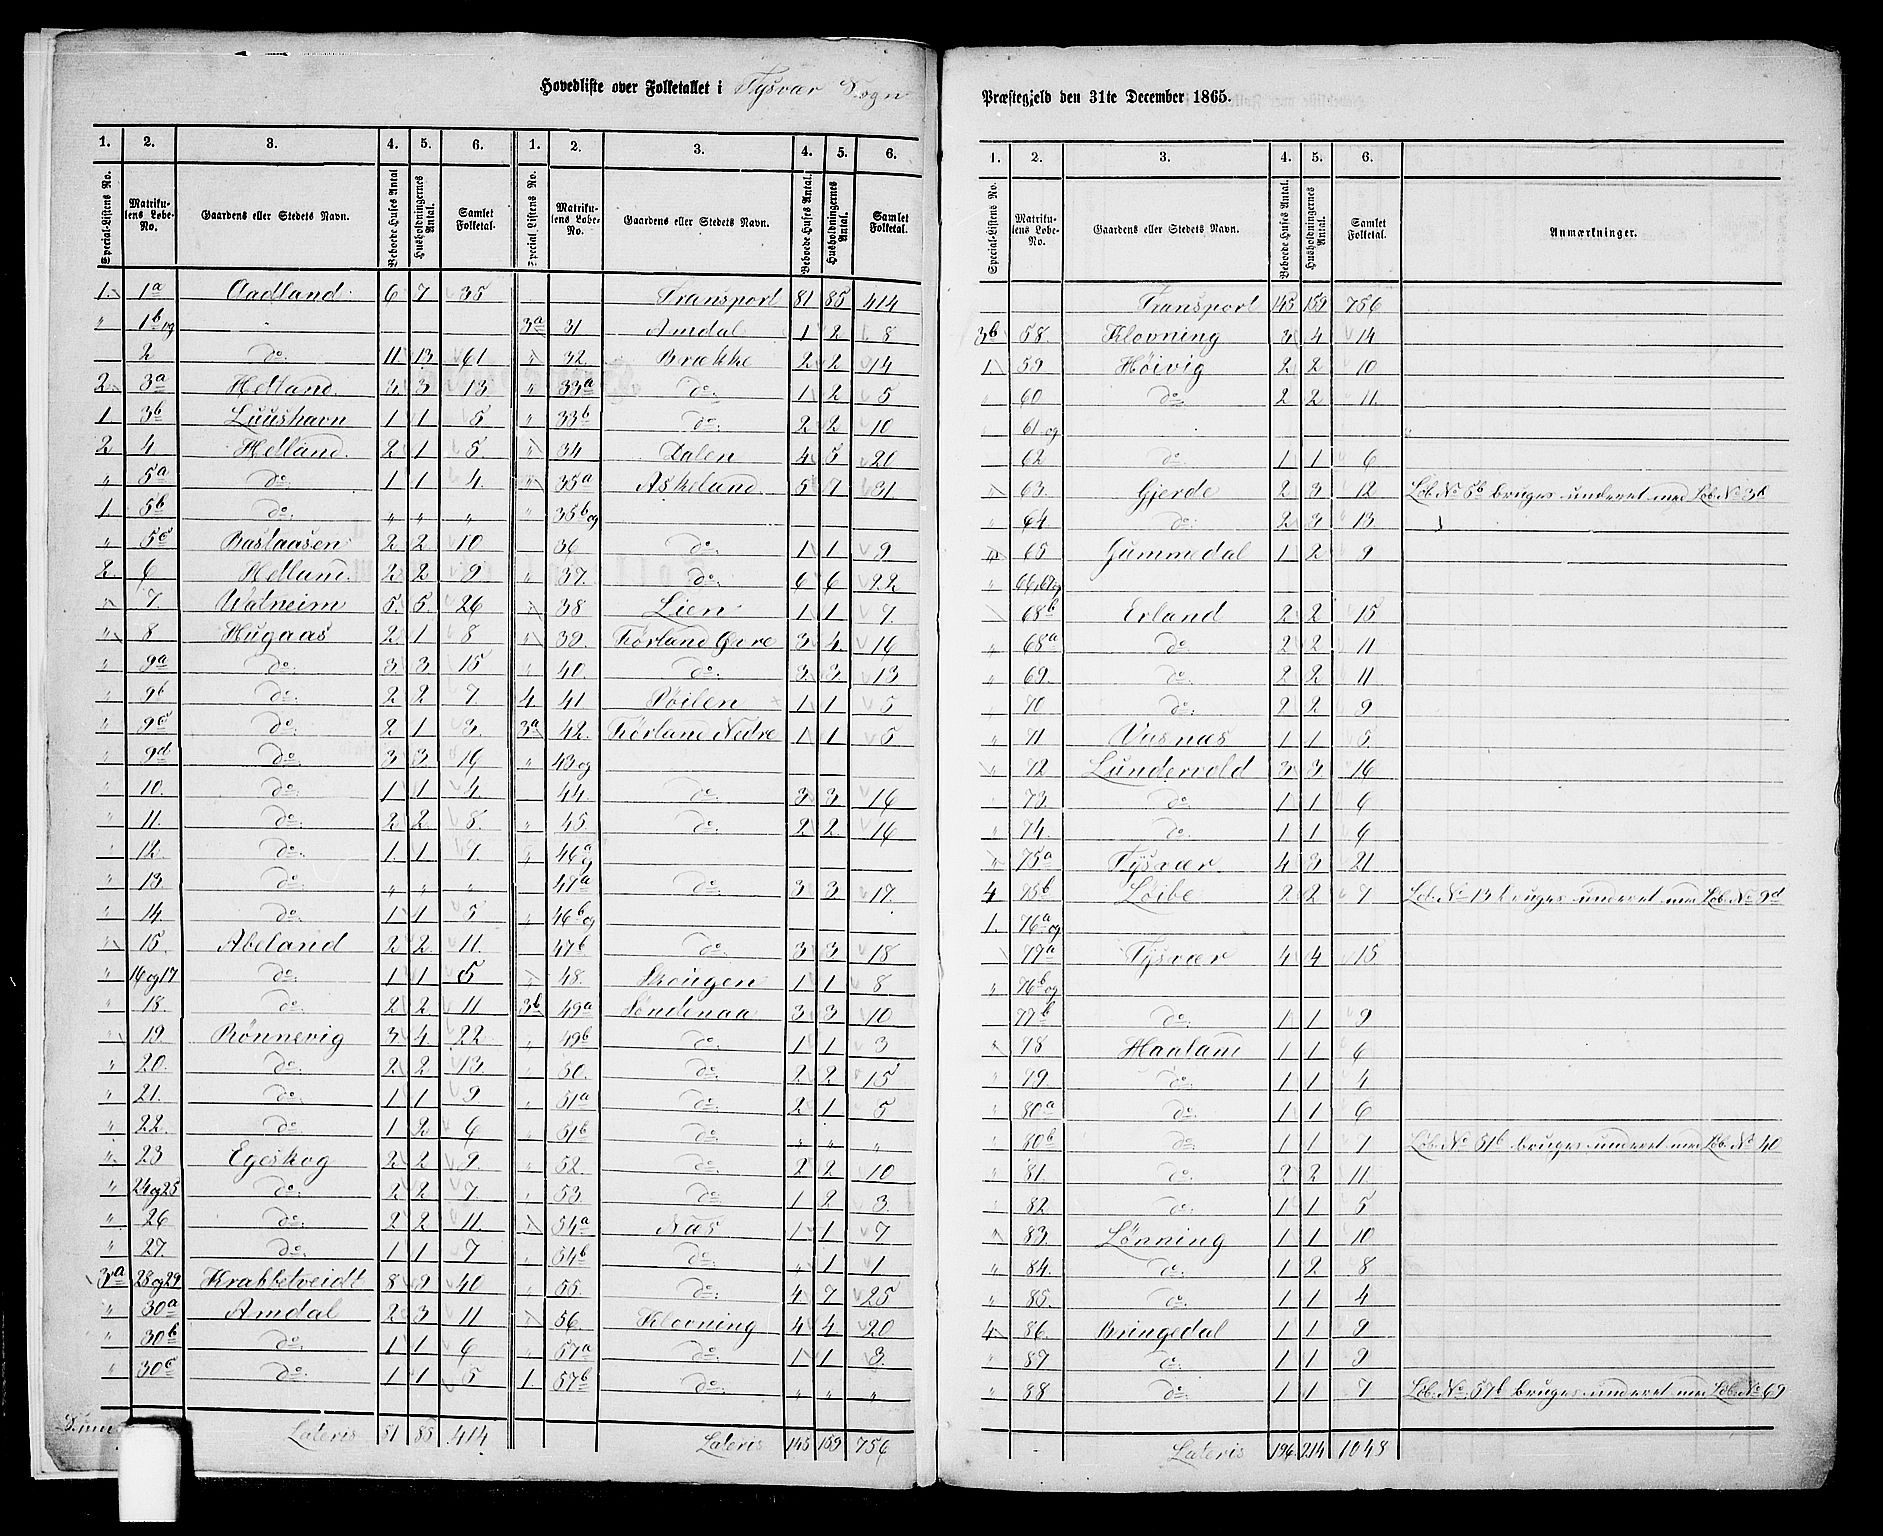 Hovedliste over Folketallet i Tysvær Sogn
1. 2. 3. 4. 5. 6.
Special-Listens No. Matrikulens Løbe-No. Gaardens eller Stedets Navn. Beboede Huses Antal Husholdningernes Antal. Samlet Folketal.
1. 1a Aadland 6 7 35
" 1b og
2 do 11. 13 61
2. 3a Hetland 3 3 13
1. 3b Luushavn 1 1 5
2 4 Hetland 2 1 5
" 5a do 1 1 4.
1. 5b do " " "
" 5c Bastaasen 2 2 10
2. 6 Hetland 2 2 9
" 7. Vatneim 5. 5. 26
" 8 Hugaas 2 1 8
" 9a do 3 3 15
" 9b do 2 2 7
" 9c do 2 1 3
" 9d do 3 3 16
" 10. do 1 1 4
" 11. do 2 2 8
" 12. do 1. 1 7.
" 13 do " " "
" 14 do 1 1 5
" 15. Apeland 2 2 11.
" 16 og 17 do 1 1 5
" 18. do 2 2 11
" 19 Rønnevig 3 4 22
" 20. do 2 2 13
" 21. do 1 1 9
" 22. do 1 2 6
" 23 Egeskog 2 2 9.
" 24 og 25 do 2 2 7.
" 26 do 2 2 11.
" 27 do 1 1 7
3a 28 og 29 Krabbetveidt 8 9 40
" 30a Amdal 2 3 11
" 30b do 1 1 6
" 30c do 1 1 5
Lateris 81 85 414
1. 2. 3. 4. 5. 6.
Special Listens No. Matrikulens Løbe-No. Gaardens eller Stedets Navn. Beboede Huses Antal. Husholdningernes Antal. Samlet Folketal.
Transport 81 85 414
3a 31 Amdal 1 2 8
" 32. Brække 2 2 14
" 33a do 1 2 5
" 33b do 2 2 10
" 34 Dalen 4 5 20
" 35a Askeland 5 7 31
" 35b og
36 do 1 1 9
" 37. do 6 6 22
" 38 Lien 1 1 7.
" 39. Førland Øvre 3 4. 16
" 40. do 3 3 13
4. 41 Røilen 1 1 5
3a 42. Førland Nedre 1 1 5
" 43 og
44. do 3 3 16
" 45. do 2 2 16
" 46a og
47a do 3 3 17
46b og
47b do 3 3 18
" 48. Skougen 1 1 8
3b 49a Søndenaa 3 3 10
" 49b do 1 1 3
" 50. do 2 2 15
" 51a do 2 1 5
" 51b do " " "
" 52. do 2 2 10
" 53. do 1 2 3.
" 54a Næs 1 1 7
" 54b do " 1 1
" 55. do 4 7 25
" 56 Klovning 4 4 20
" 57a do 1 1 3.
1 57b do " " "
Lateris 145 159 756
Præstegjeld den 31te December 1865.
1. 2. 3. 4. 5. 6.
Special-Listens No. Matrikulens Løbe-No. Gaardens eller Stedets Navn. Beboede Huses Antal. Husholdningernes Antal. Samlet Folketal. Anmærkninger.
Transport 145 159 756
3b 58. Klovning 3 4 14
1 59 Høivig 2 2 10
" 60 do 2 2 11.
" 61 og
62 do 1 1 6
" 63. Gjerde 2 3 12 Løb. No 5b bruges underet med Løb. No 3b
" 64. do 2 3 13
" 65 Gummedal 1 2 9
" 66, 67 og
68b Erland 2 2 15
" 68a do 2 2 11
" 69. do 2 2 11
" 70 do 2 2 9
" 71 Vasnæs 1 1 5
" 72 Lundervold 3 3 16
73. do 1 1 6
" 74. do 1 1 6
" 75a Tysvær 4 3 21
4 75b Løibe 2 2 7 Løb. No 13 bruges underet med Løb. No 9d
1. 76a og
77a Tysvær 4 4 15
" 76b og
77b do 1 1 9
" 78 Haaland 1 1 6
" 79. do 1 1 4
" 80a do 1 1 6
" 80b do 1 1 1 Løb. No 51b bruges underet med Løb. No 40
" 81 do 2 2 11.
" 82 do 1 1 5
" 83. Lønning 1 1 10
" 84. do 1 2 8
" 85. do 1 1 4
4 86. Bringedal 1 1 9
" 87 do 1 1 9
" 88 do 1 1 7 Løb. No 57b bruges underet med Løb. No 69
Lateris 196 214 1048